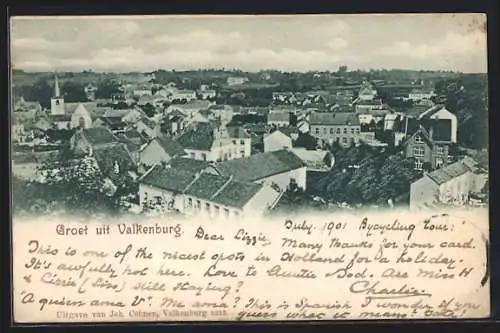 Groet uit Valkenburg.
July. 1901 Bycycling Tour!
Dear Lizzie Many thanks for your card.
This is one of the nicest spots in Holland for a holiday.
It's awfully hot here. Love to Auntie & Dod. Are Miss H
& Cizzie (Liss) still staying? Charlie
"A quien ama V". Me ama? This is Spanish I wonder if you
guess what it means? Ta ta!
Uitgave van Joh. Cohnen, Valkenburg